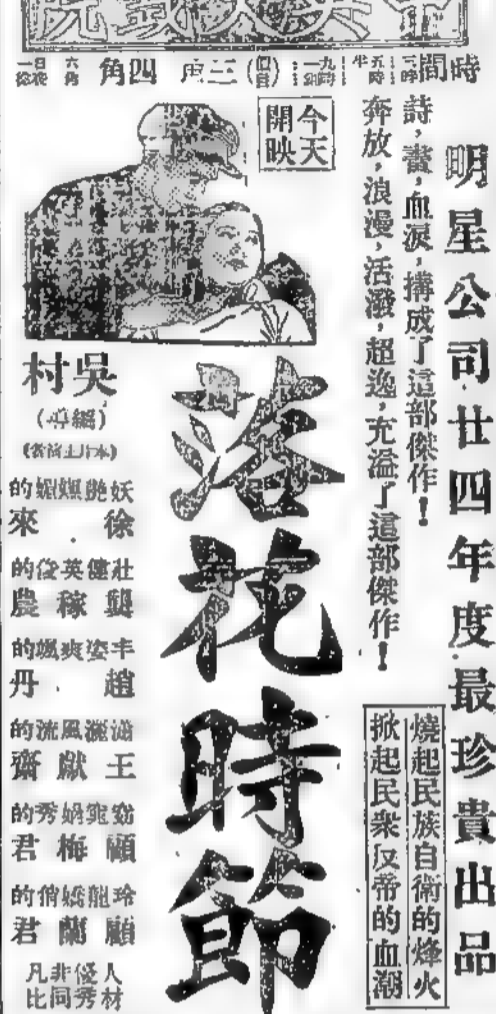 時間 三時 五時半 九時一刻 (價目) 三角 四角 六角
明星公司廿四年度最珍貴出品
詩，畫，血淚，搆成了這部傑作！
奔放，浪漫，活潑，超逸，充溢了這部傑作！
燒起民族自衛的烽火
掀起民衆反帝的血潮
今天
開映
落花時節
吳村
(編導)
徐來
壯健英俊的
龔稼農
丰姿爽颯的
趙丹
瀟灑風流的
王獻齋
窈窕娟秀的
顧梅君
玲瓏嬌俏的
顧蘭君
人材優秀
非同凡比